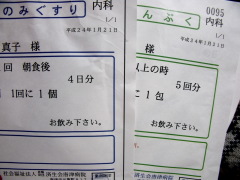 のみぐすり 内科
1/1
平成24年1月21日
真子 様
回 朝食後
4日分
1回に 1個
お飲み下さい。
社会福祉法人 済生会唐津病院
んぷく 0095
内科
1/1
平成24年1月21日
様
以上の時
5回分
に 1包
お飲み下さい。
済生会唐津病院